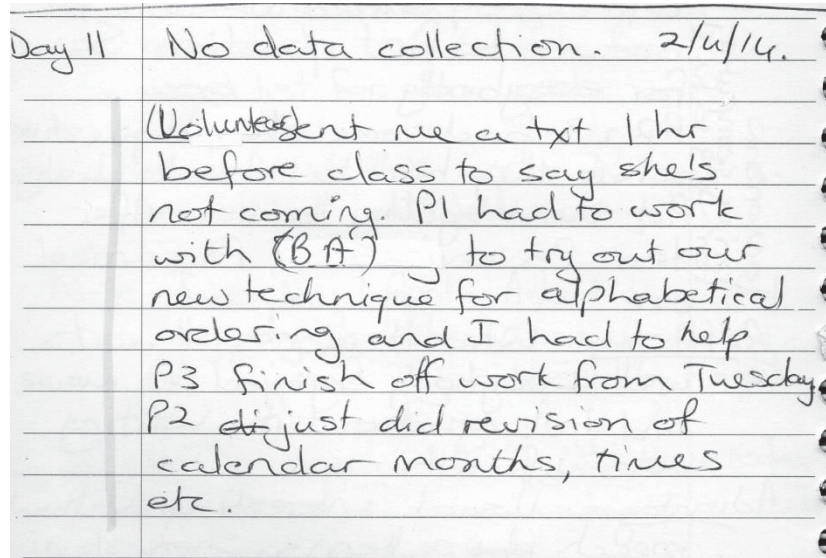 Day 11 No data collection. 2/4/14.
(Volunteer) sent me a txt 1 hr
before class to say she's
not coming. P1 had to work
with (BA) to try out our
new technique for alphabetical
ordering and I had to help
P3 finish off work from Tuesday
P2 di just did revision of
calendar months, times
etc.